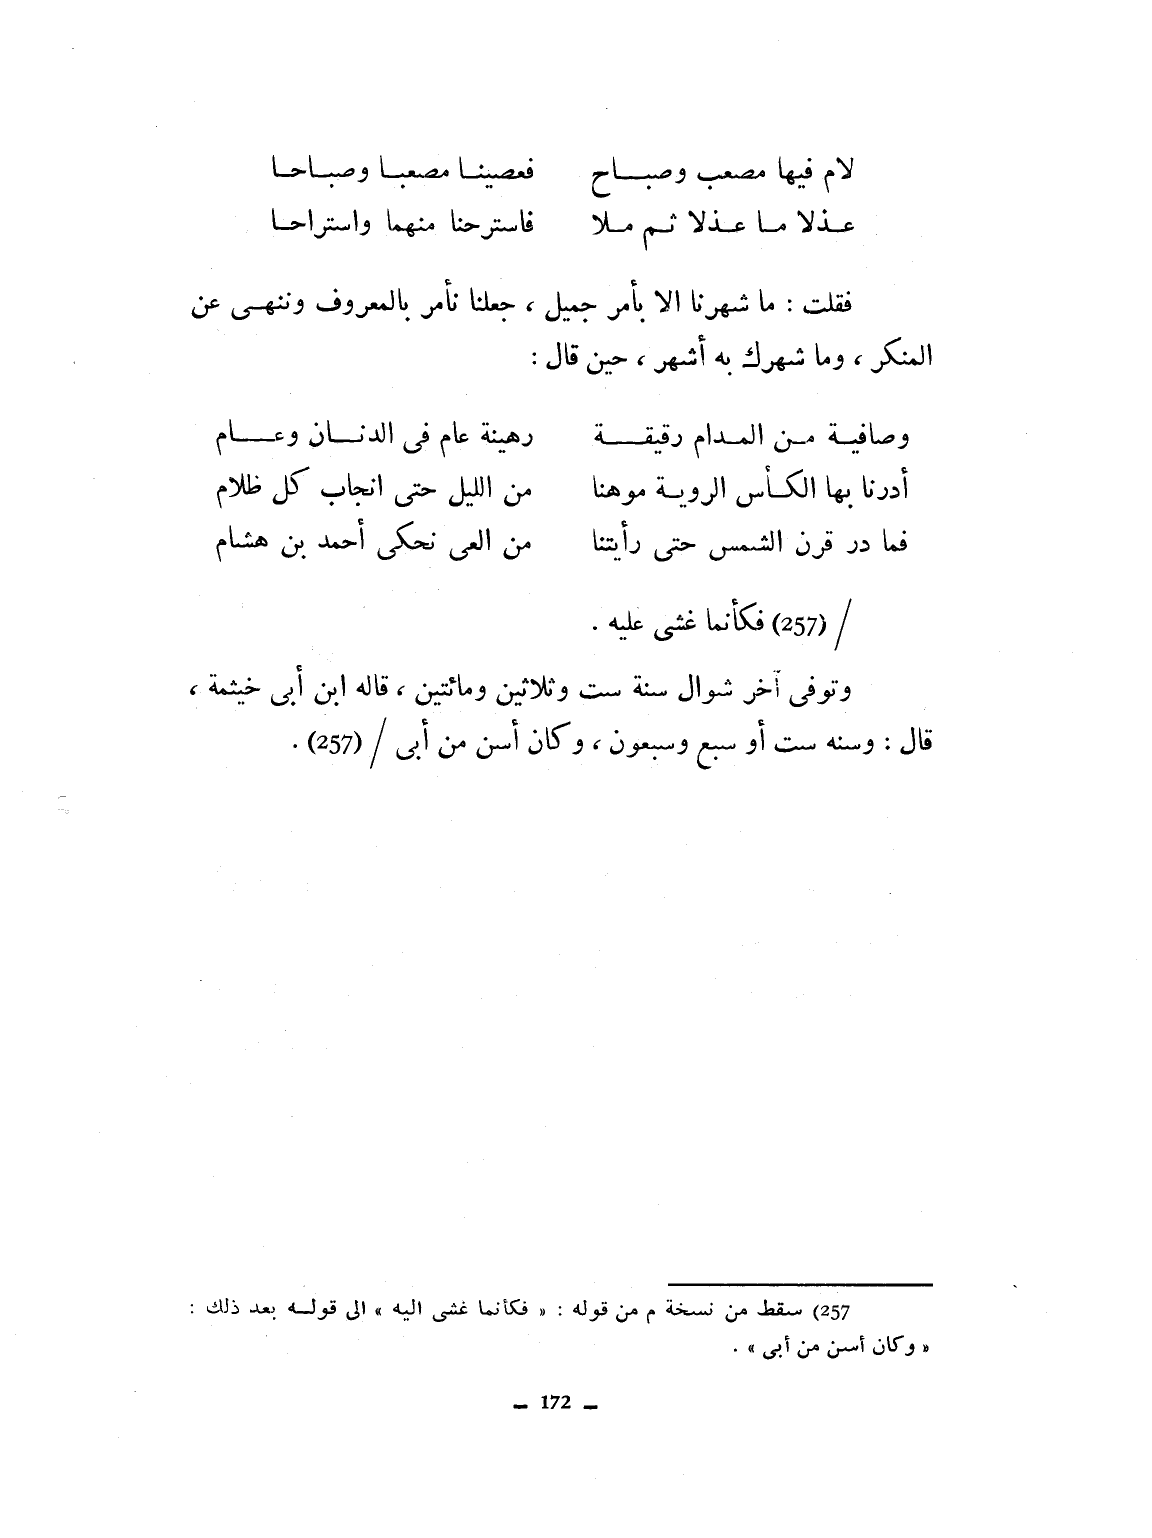 لام فيها مصعب وصباح فعصينا مصعبا وصباحا
عذلا ما عذلا ثم ملا فاسترحنا منهما واستراحا
فقلت : ما شهرنا الا بأمر جميل ، جعلنا نأمر بالمعروف وننهى عن
المنكر ، وما شهرك به أشهر ، حين قال :
وصافية من المدام رقيقة رهينة عام فى الدنان وعام
أدرنا بها الكأس الروية موهنا من الليل حتى انجاب كل ظلام
فما در قرن الشمس حتى رأيتنا من العى نحكى أحمد بن هشام
/ (257) فكأنما غشى عليه .
وتوفى آخر شوال سنة ست وثلاثين ومائتين ، قاله ابن أبى خيثمة ،
قال : وسنه ست أو سبع وسبعون ، وكان أسن من أبى / (257) .
257) سقط من نسخة م من قوله : « فكأنما غشى اليه » الى قوله بعد ذلك :
« وكان أسن من أبى » .
– 172 –